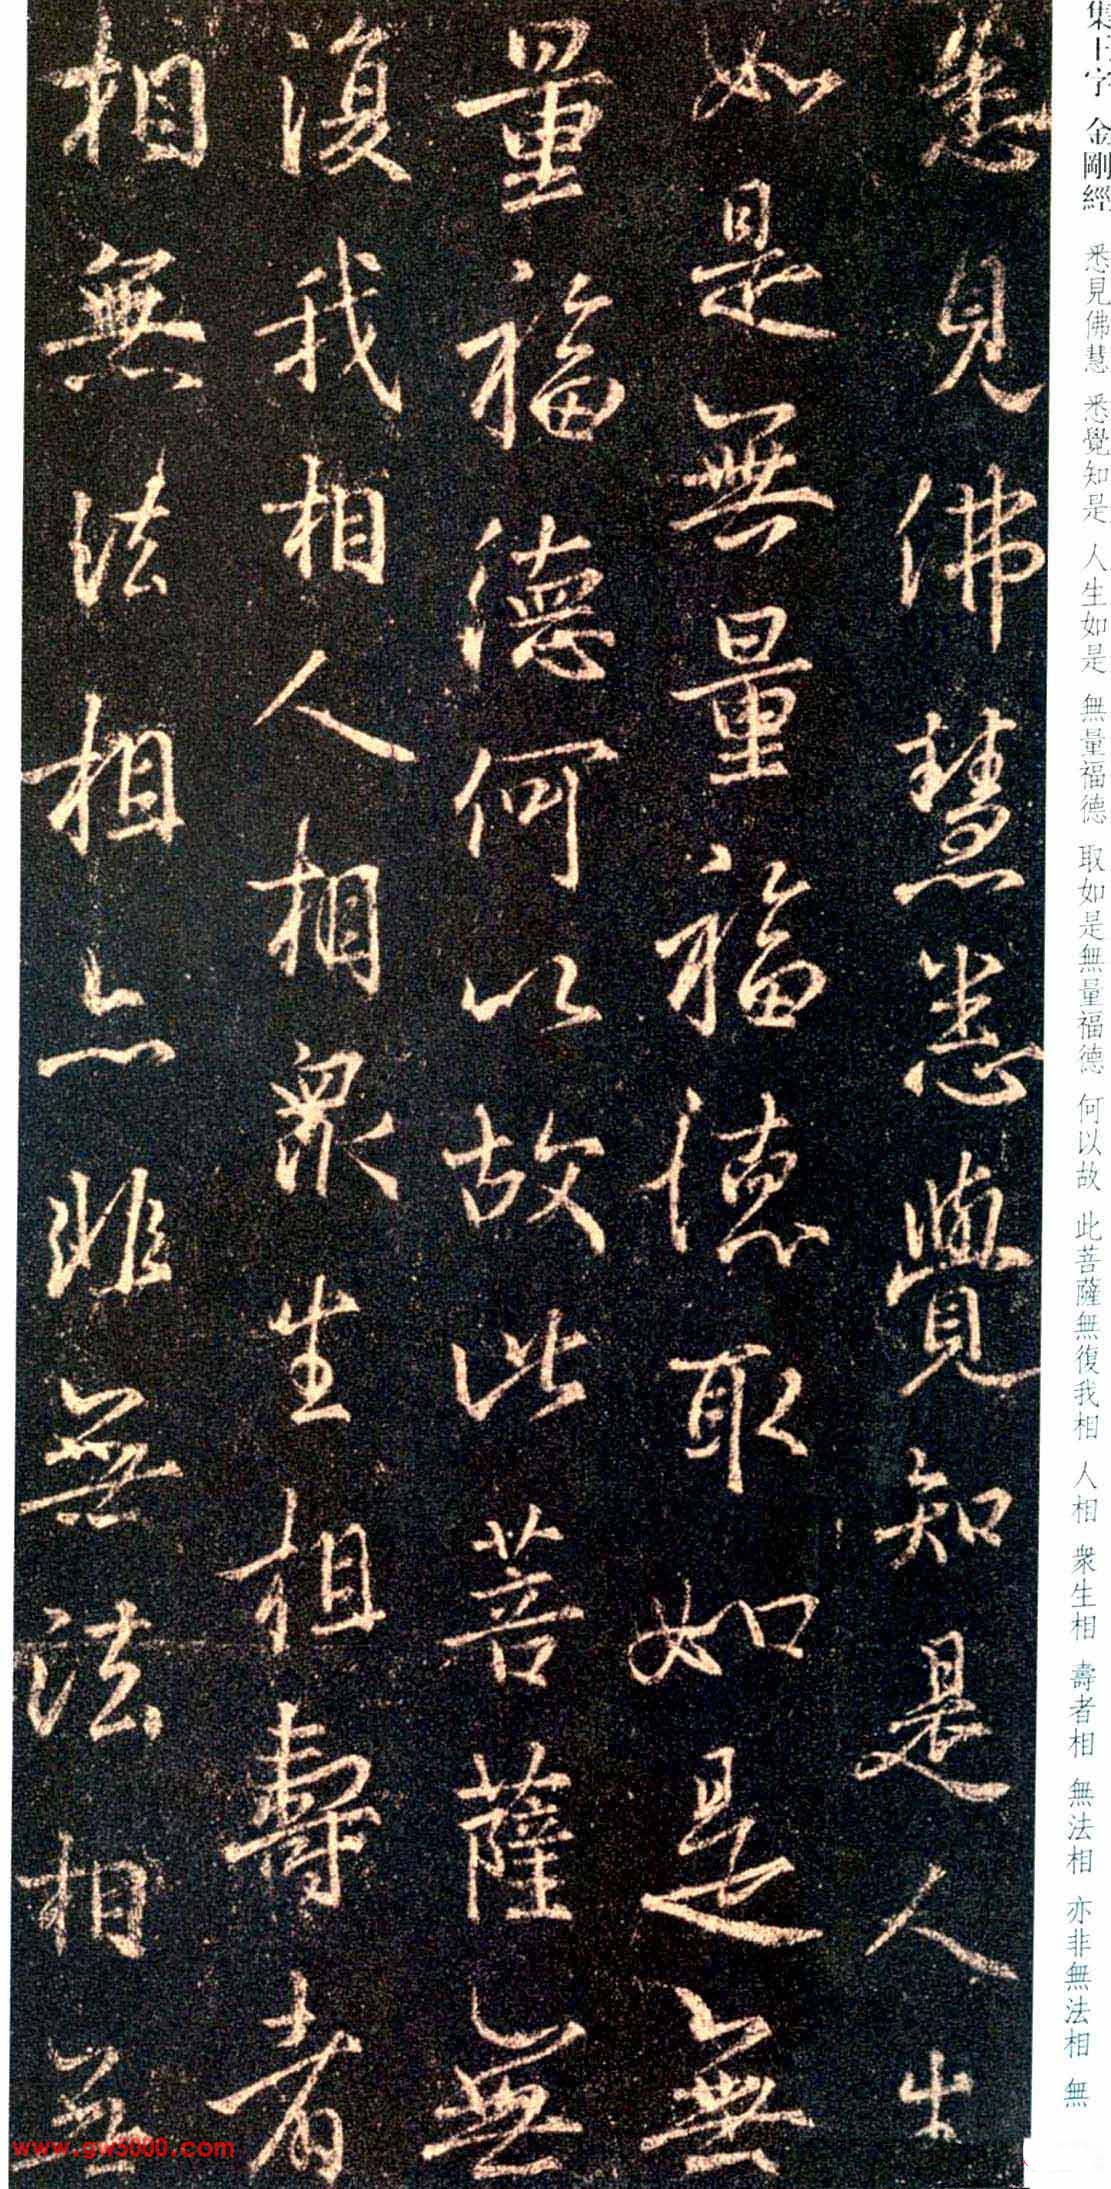 集王字 金剛經 悉見佛慧 悉覺知是 人生如是 無量福德 取如是無量福德 何以故 此菩薩無復我相 人相 衆生相 壽者相 無法相 亦非無法相 無
悉見佛慧悉覺知是人生
如是無量福德取如是無
量福德何以故此菩薩無
復我相人相衆生相壽者
相無法相相亦非無法相無
www.gw5000.com